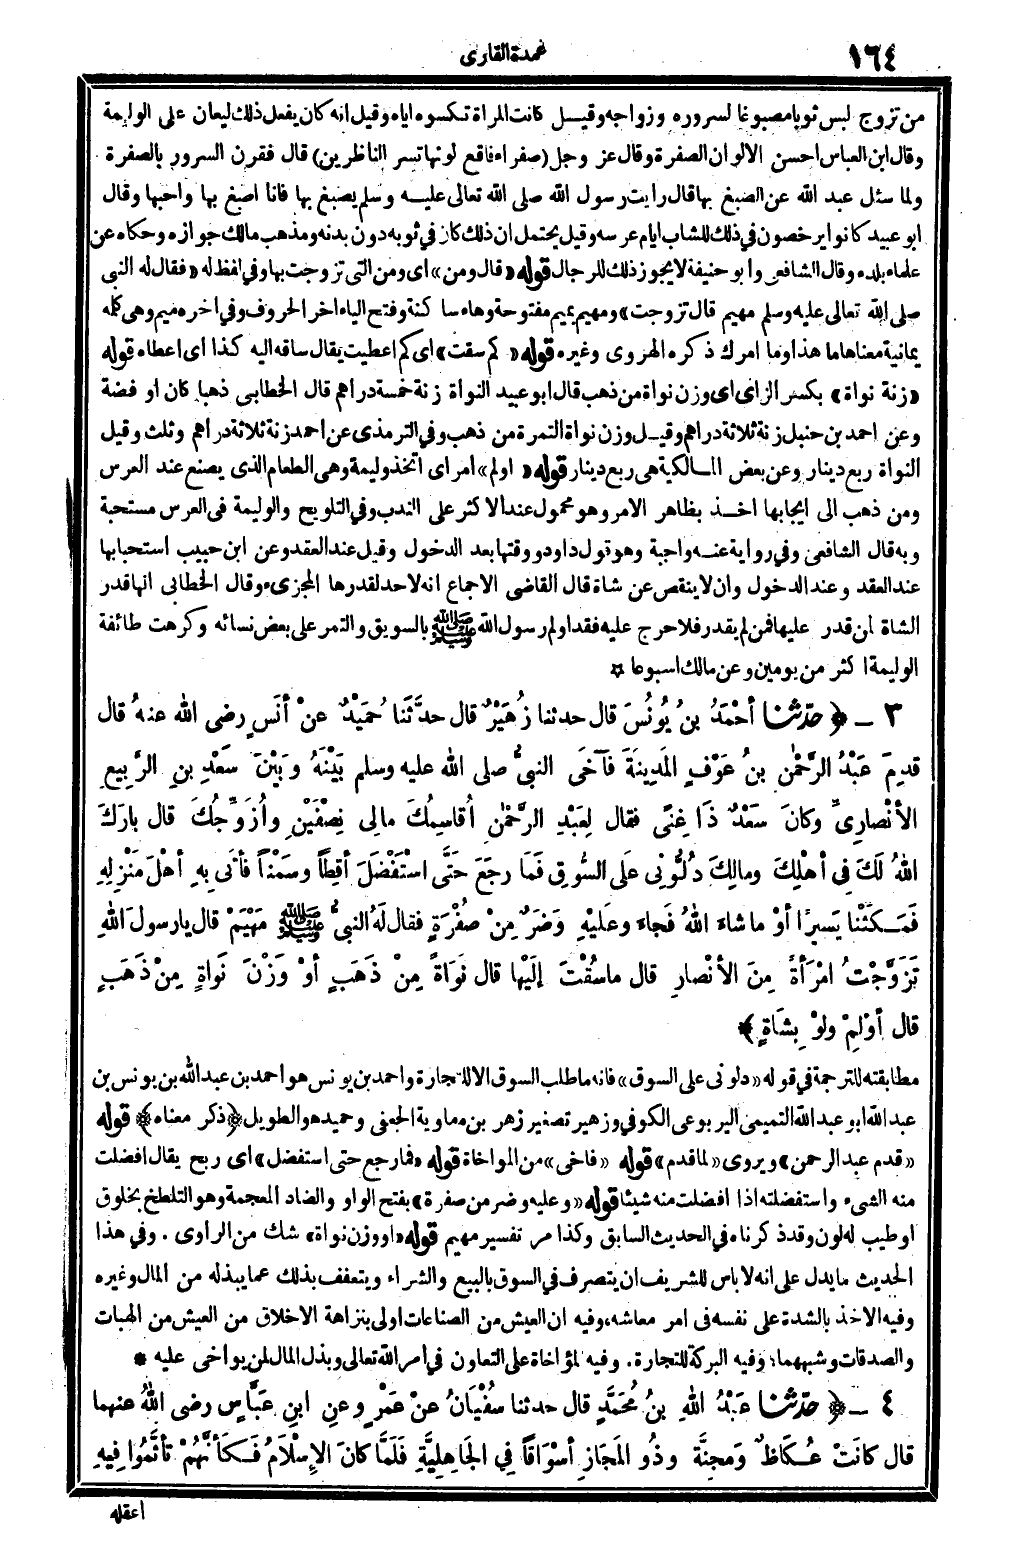 ١٦٤
عمدة القارى
من تزوج لبس ثوبا مصبوغا لسروره وزواجه وقيل كانت المرأة تكسوه اياه وقيل انه كان يفعل ذلك ليعان على الوليمة
وقال ابن العباس احسن الالوان الصفرة وقال عز وجل (صفراء فاقع لونها تسر الناظرين) قال فقرن السرور بالصفرة
ولما سئل عبد الله عن الصبغ بها قال رايت رسول الله صلى الله تعالى عليه وسلم يصبغ بها فانا اصبغ بها واحبها وقال
ابو عبيد كانوا يرخصون في ذلك للشاب ايام عرسه وقيل يحتمل ان ذلك كان في ثوبه دون بدنه ومذهب مالك جوازه وحكاه عن
علماء بلده وقال الشافعى وابو حنيفة لا يجوز ذلك للرجال قوله «قال ومن» اى ومن التى تزوجت بها وفي لفظ له «فقال له النبى
صلى الله تعالى عليه وسلم مهيم قال تزوجت» ومهيم بميم مفتوحة وهاء ساكنة وفتح الياء اخر الحروف وفي اخره ميم وهى كلمه
يمانية معناها ما هذا وما امرك ذكره الهروى وغيره قوله «كم سقت» اى كم اعطيت يقال ساقه اليه كذا اى اعطاه قوله
«زنة نواة» بكسر الزاى اى وزن نواة من ذهب قال ابو عبيد النواة زنة خمسة دراهم قال الخطابى ذهبا كان او فضة
وعن احمد بن حنبل زنة ثلاثة دراهم وقيل وزن نواة التمرة من ذهب وفي الترمذى عن احمد زنة ثلاثة دراهم وثلث وقيل
النواة ربع دينار وعن بعض المالكية هى ربع دينار قوله «اولم» امر اى اتخذ وليمة وهى الطعام الذى يصنع عند العرس
ومن ذهب الى ايجابها اخذ بظاهر الامر وهو محمول عند الاكثر على الندب وفي التلويح والوليمة في العرس مستحبة
وبه قال الشافعى وفي رواية عنه واجبة وهو قول داود ووقتها بعد الدخول وقيل عند العقد وعن ابن حبيب استحبابها
عند العقد وعند الدخول وان لا ينقص عن شاة قال القاضى الاجماع انه لا حد لقدرها المجزىء وقال الخطابى انها قدر
الشاة لمن قدر عليها فمن لم يقدر فلا حرج عليه فقد اولم رسول الله ﷺ بالسويق والتمر على بعض نسائه وكرهت طائفة
الوليمة اكثر من يومين وعن مالك اسبوعا ¤
٣ ـ ﴿حدّثنا أَحْمَدُ بنُ يُونُسَ قال حدثنا زُهَيْرٌ قال حدَّثَنا حُمَيْدٌ عنْ أنَسٍ رضى الله عنهُ قال
قدِمَ عَبْدُ الرَّحْمٰنِ بنُ عَوْفٍ المَدِينَةَ فَآخَى النبىُّ صلى الله عليه وسلم بَيْنَهُ وَبَيْنَ سَعْدِ بنِ الرَّبِيعِ
الأنْصارِىِّ وكانَ سَعْدٌ ذَا غِنًى فقال لِعَبْدِ الرَّحْمٰنِ أُقاسِمُكَ مالِى نِصْفَيْنِ وأُزَوِّجُكَ قال بارَكَ
اللهُ لَكَ فِى أهْلِكَ ومالِكَ دُلُّونِى علَى السُّوقِ فَمَا رجَعَ حَتَّى اسْتَفْضَلَ أقِطًا وسَمْنًا فأتَى بِهِ أهْلَ مَنْزِلِهِ
فَمَكَثْنا يَسِيرًا أوْ ما شاءَ اللهُ فَجاءَ وعلَيْهِ وَضَرٌ مِنْ صُفْرَةٍ فقال لَهُ النبىُّ ﷺ مَهْيَمْ قال يا رسولَ اللهِ
تَزَوَّجْتُ امْرَأةً مِنَ الأنْصارِ قال ما سُقْتَ إلَيْها قال نَوَاةً مِنْ ذَهَبٍ أوْ وَزْنَ نَواةٍ مِنْ ذَهَبٍ
قال أوْلِمْ ولَوْ بِشَاةٍ﴾
مطابقته للترجمة في قوله «دلونى على السوق» فانه ما طلب السوق الا للتجارة واحمد بن يونس هو احمد بن عبد الله بن يونس بن
عبد الله ابو عبد الله التميمى اليربوعى الكوفي وزهير تصغير زهر بن معاوية الجعفى وحميد هو الطويل ﴿ذكر معناه﴾ قوله
«قدم عبد الرحمن» ويروى «لما قدم» قوله «فاخى» من المواخاة قوله «فما رجع حتى استفضل» اى ربح يقال افضلت
منه الشىء واستفضلته اذا افضلت منه شيئا قوله «وعليه وضر من صفرة» بفتح الواو والضاد المعجمة وهو التلطخ بخلوق
او طيب له لون وقد ذكرناه في الحديث السابق وكذا مر تفسير مهيم قوله «او وزن نواة» شك من الراوى . وفي هذا
الحديث ما يدل على انه لا باس للشريف ان يتصرف في السوق بالبيع والشراء ويتعفف بذلك عما يبذله من المال وغيره
وفيه الاخذ بالشدة على نفسه في امر معاشه، وفيه ان العيش من الصناعات اولى بنزاهة الاخلاق من العيش من الهبات
والصدقات وشبههما؛ وفيه البركة للتجارة. وفيه المؤاخاة على التعاون في امر الله تعالى وبذل المال لمن يواخى عليه *
٤ ـ ﴿حدّثنا عَبْدُ اللهِ بنُ مُحَمَّدٍ قال حدثنا سُفْيَانُ عنْ عَمْرٍو عنِ ابنِ عَبَّاسٍ رضى اللهُ عنهما
قال كانَتْ عُكاظٌ ومَجِنَّةُ وذُو المَجازِ أسْوَاقًا فِي الجَاهِلِيَّةِ فَلَمَّا كانَ الإسْلاَمُ فَكَأنَّهُمْ تأثَّمُوا فِيهِ
اعقله